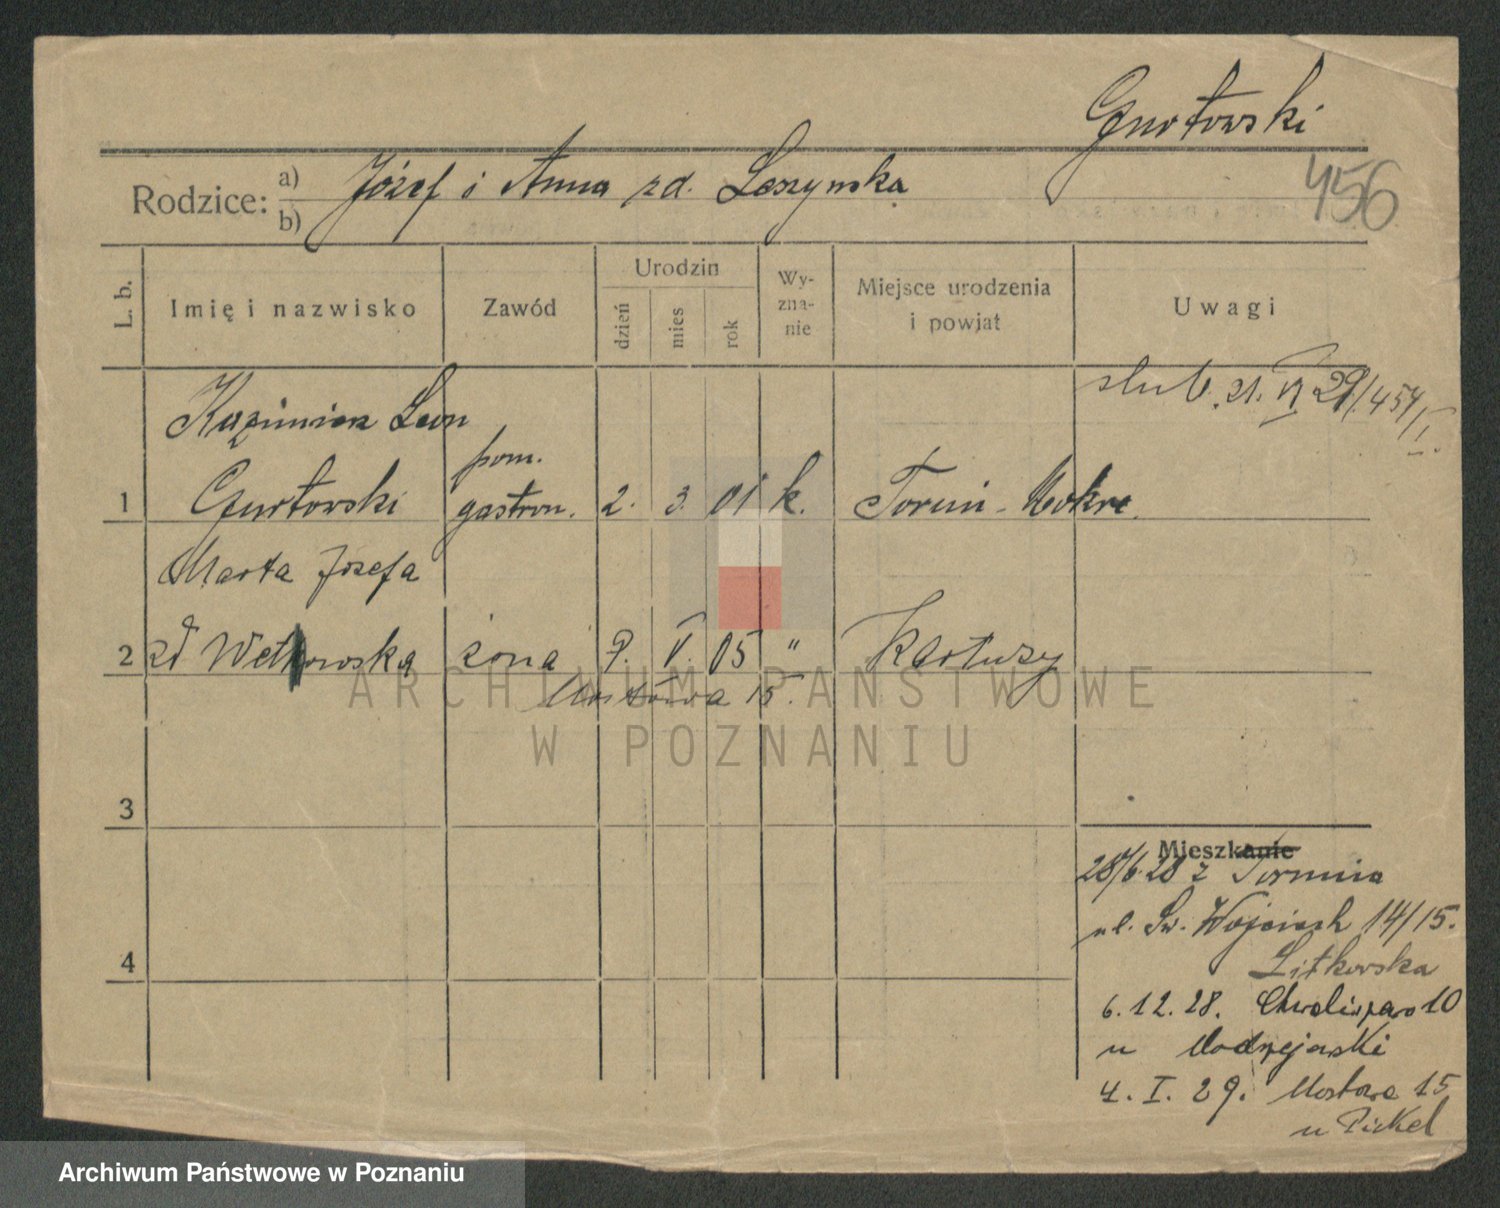 Gurtowski
456
Rodzice: a) Józef i Anna zd. Leszynska
b)
L. b.
Imię i nazwisko
Zawód
Urodzin
dzień
mies
rok
Wy-
zna-
nie
Miejsce urodzenia
i powiat
Uwagi
ślub. 21. VI 29/. 454/I.
Kazimierz Leon
pom.
1 Gurtowski gastron. 2. 3. 01 k. Toruń - Mokre
Marta Józefa
2 zd Wetkowska żona 9. V. 05 " Kartuzy
Mostowa 15.
3
4
Mieszkanie
28/6 28 z Torunia
ul. Św. Wojciech 14/15.
Litkowska
6. 12. 28. Chwaliszewo 10
u Modrzejewski
4. I. 29. Mostowa 15
u Pickel
ARCHIWUM PAŃSTWOWE
W POZNANIU
Archiwum Państwowe w Poznaniu